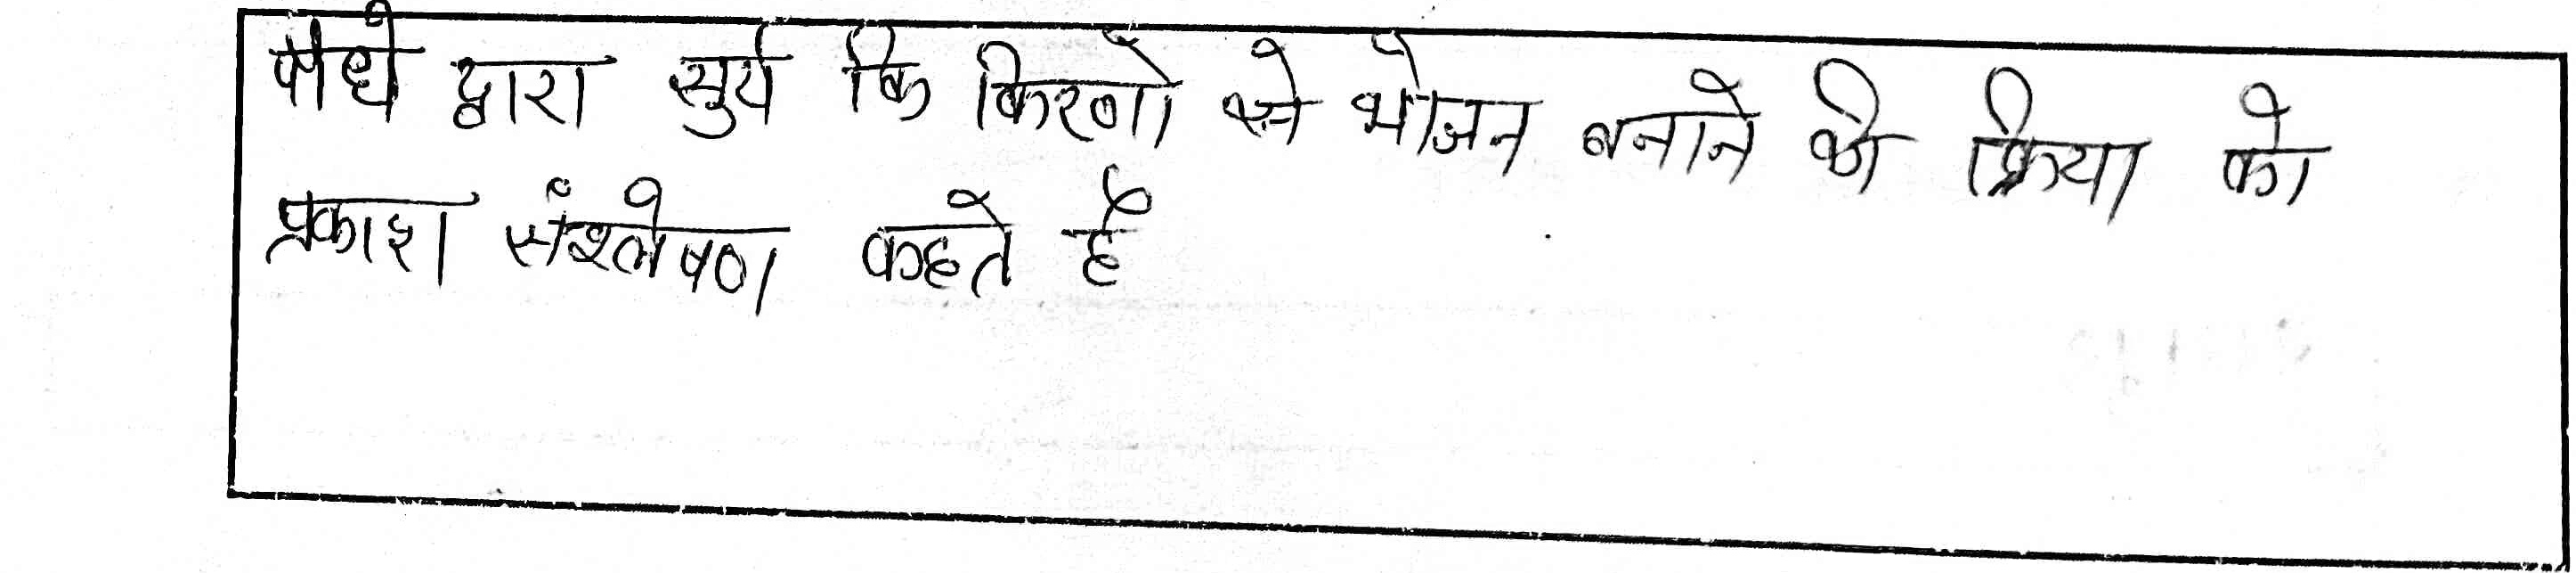 पौधे द्वारा सुर्य कि किरणो से भोजन बनाने की क्रिया को
प्रकाश संश्लेषण कहते है